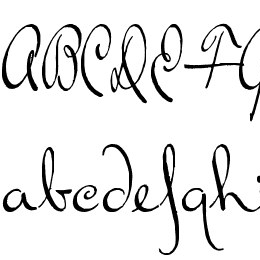 ABCDEFG
abcdefghi